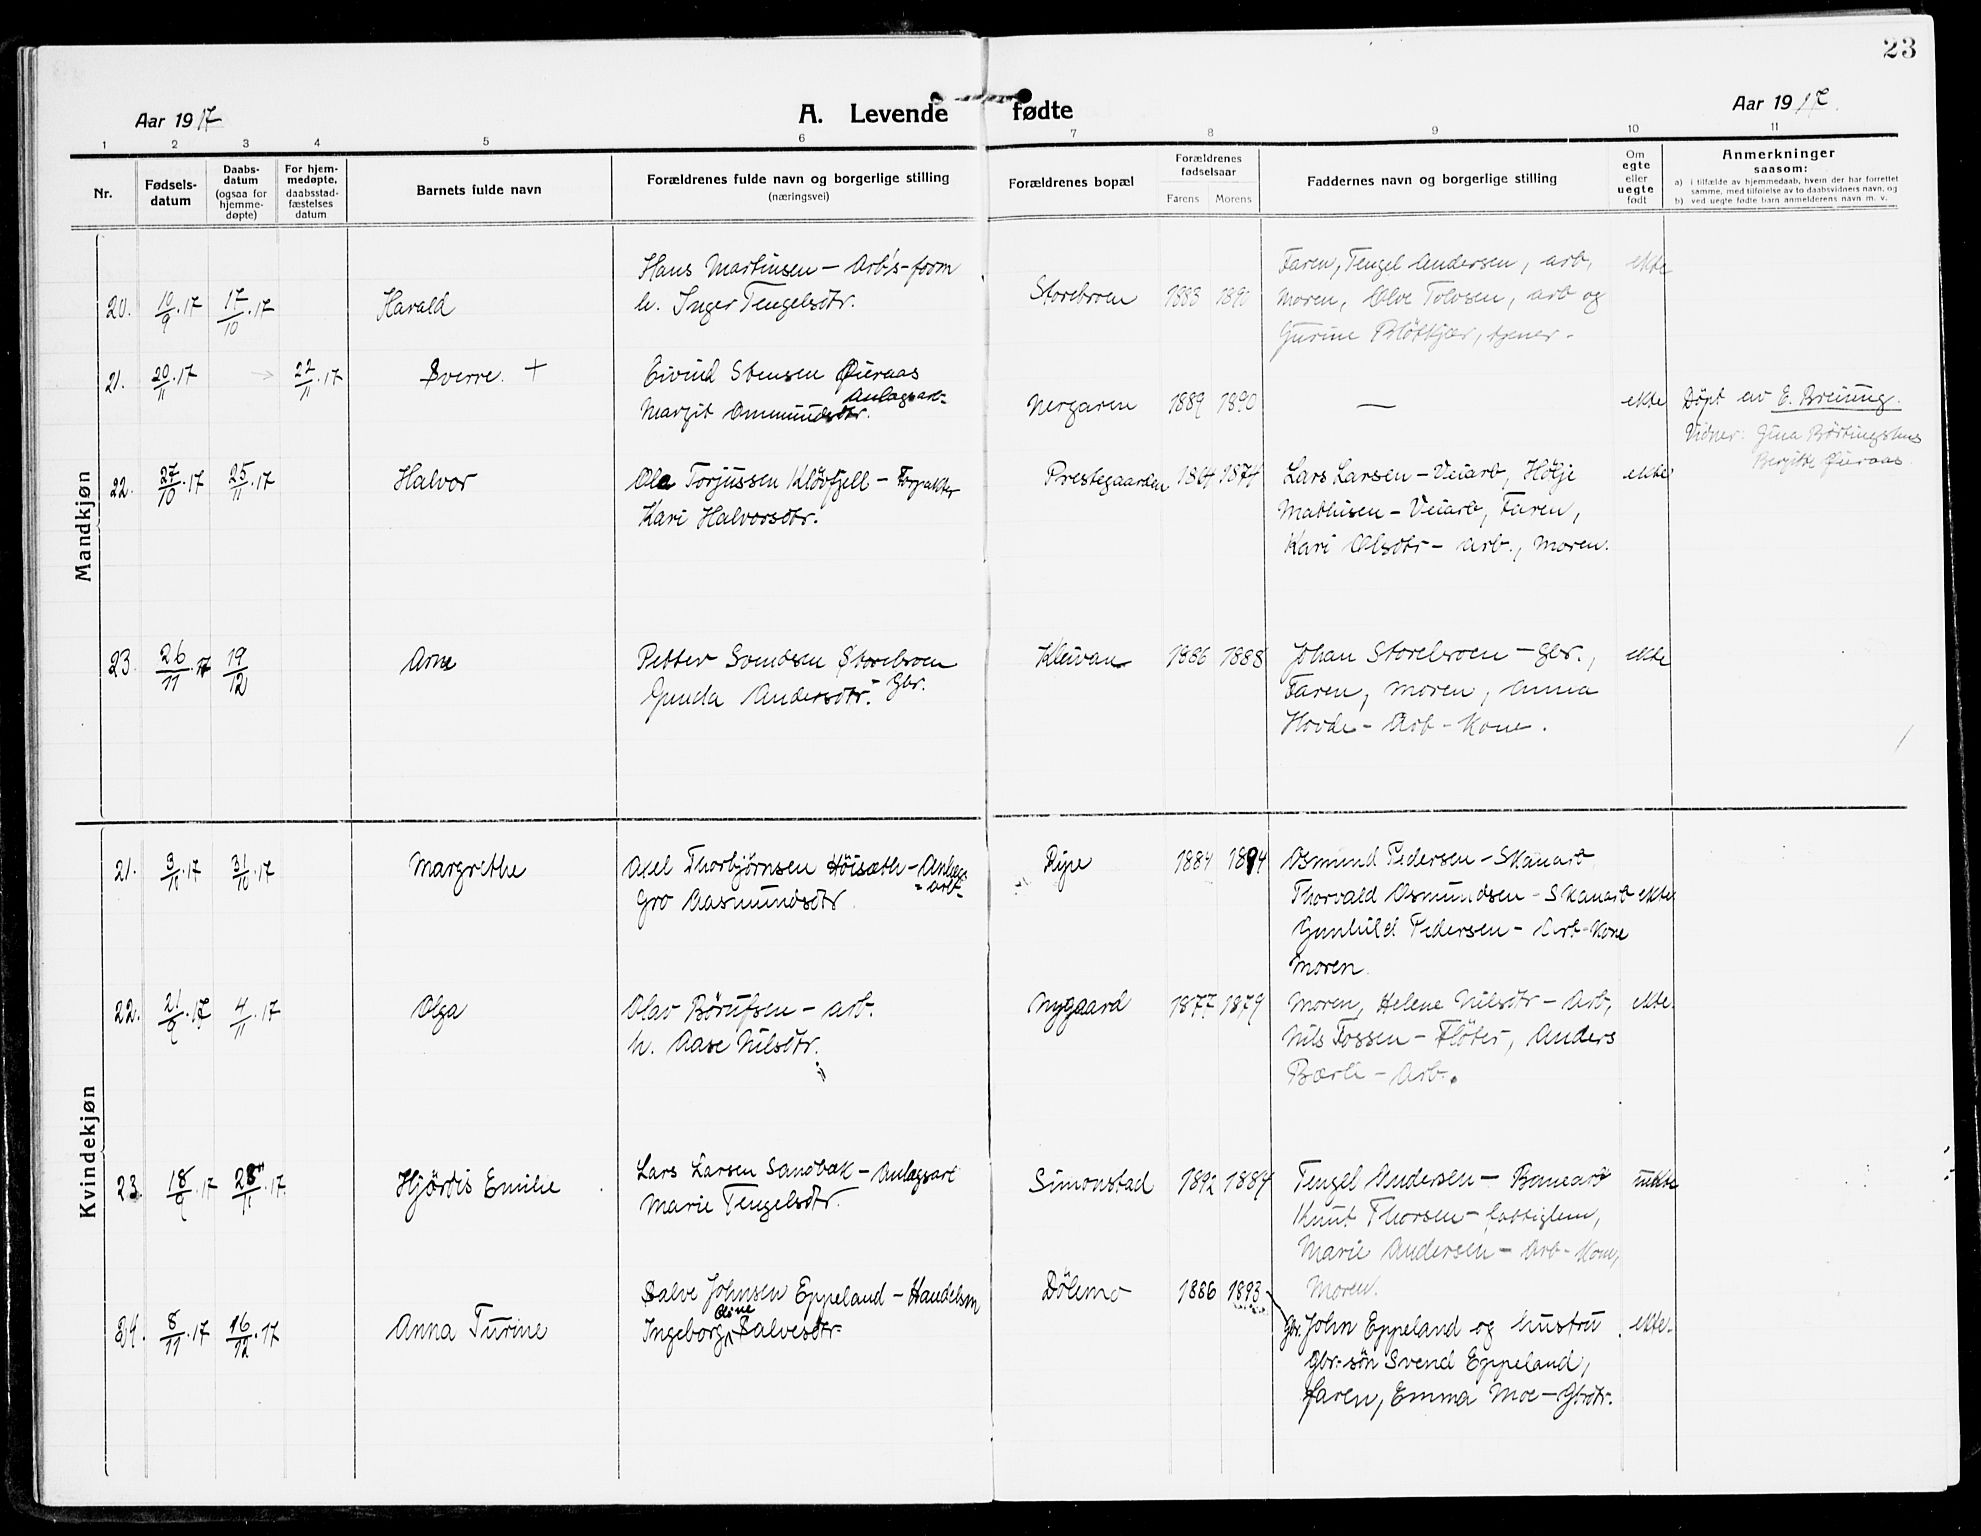 23
Aar 1917
A. Levende fødte
Aar 1917.
1 2 3 4 5 6 7 8 9 10 11
Nr.
Fødsels-
datum
Daabs-
datum
(ogsaa for
hjemme-
døpte)
For hjem-
medøpte,
daabsstad-
fæstelses
datum
Barnets fulde navn
Forældrenes fulde navn og borgerlige stilling
(næringsvei)
Forældrenes bopæl
Forældrenes
fødselsaar
Farens Morens
Faddernes navn og borgerlige stilling
Om
egte
eller
uegte
født
Anmerkninger
saasom:
a) i tilfælde av hjemmedaab, hvem der har forrettet
samme, med tilføielse av to daabsvidners navn, og
b) ved uegte fødte barn anmelderens navn m. v.
Mandkjøn
20. 10/9.17 17/10.17 Harald
Hans Martinsen – Arb's-form
h. Inger Tengelsdtr.
Storebroen 1888 1890
Faren, Tengel Andersen, arb,
moren, Olve Tolvsen, arb og
Gurine Bløtkjær, tjener.
ekte
21. 20/11.17 22/11.17 Sverre. +
Eivind Stensen Øieraas
Anlagsarb-
Margit Ammundsdtr.
Nergaren 1889 1890 — ekte
Döpt av E. Breiung.
Vidner: Gina Børtingshus
Bergitte Øieraas.
22. 27/10.17 25/11.17 Halvor
Ole Torjussen Kløvfjell –
Kari Halvorsdtr.
Prestegaarden 1864 1874
Lars Larsen – Veiarb, Hølje
Mathisen – Veiarb, Faren,
Kari Olsdtr – arb., moren.
ekte
23. 26/11.17 19/12 Arne
Petter Svendsen Storebroen
Gbr.
Gunda Andersdtr.
Kleivan 1886 1888
Johan Storebroen – Gbr.,
Faren, moren, Anna
Hovde – Arb – Kone.
ekte
Kvindekjøn
21. 3/10.17 31/10.17 Margrethe
Axel Thorbjørnsen Höisæth – Anlægs
-arb-
Gro Aasmundsdtr.
Rype 1884 1894
Asmund Pedersen – Skanarb
Thorvald Asmundsen – Skanarb
Gunhild Pedersen – Arb-Kone
moren.
ekte
22. 21/9.17 4/11.17 Olga
Olav Børufsen – arb.
h. Aase Nilsdtr.
Nygaard 1877 1879
Moren, Helene Nilsdtr – Arb,
Nils Fossen – Fløter, Anders
Bærli – Arb.
ekte.
23. 18/9.17 28/11.17. Hjørdis Emilie
Lars Larsen Sandbæk – Anlagsarb
Marie Tengelsdtr.
Simonstad 1892 1884
Tengel Andersen – Banearb
Knut Thorsen – fattiglem,
Marie Andersen – Arb-Kone,
Moren.
uekte
24. 8/11.17 16/12.17 Anna Turine
Salve Johnsen Eppeland – Handelsm
Oline
Ingeborg Salvesdtr-
Dölemo 1886 1893
Gbr. John Eppeland og hustru
Gbr-søn Svend Eppeland,
faren, Emma Moe – Gbrdtr.
ekte.